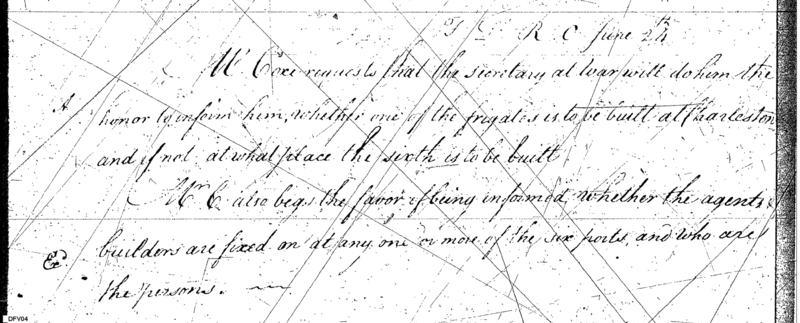 T R C June 24th
Mr Coxe requests that the secretary at war will do him the
A
honor to inform him, whether one of the frigates is to be built at Charleston
and if not at what place the sixth is to be built
Mr C also begs the favor of being informed whether the agents &
builders are fixed on at any one or more of the six ports, and who are
the persons.
DFV04